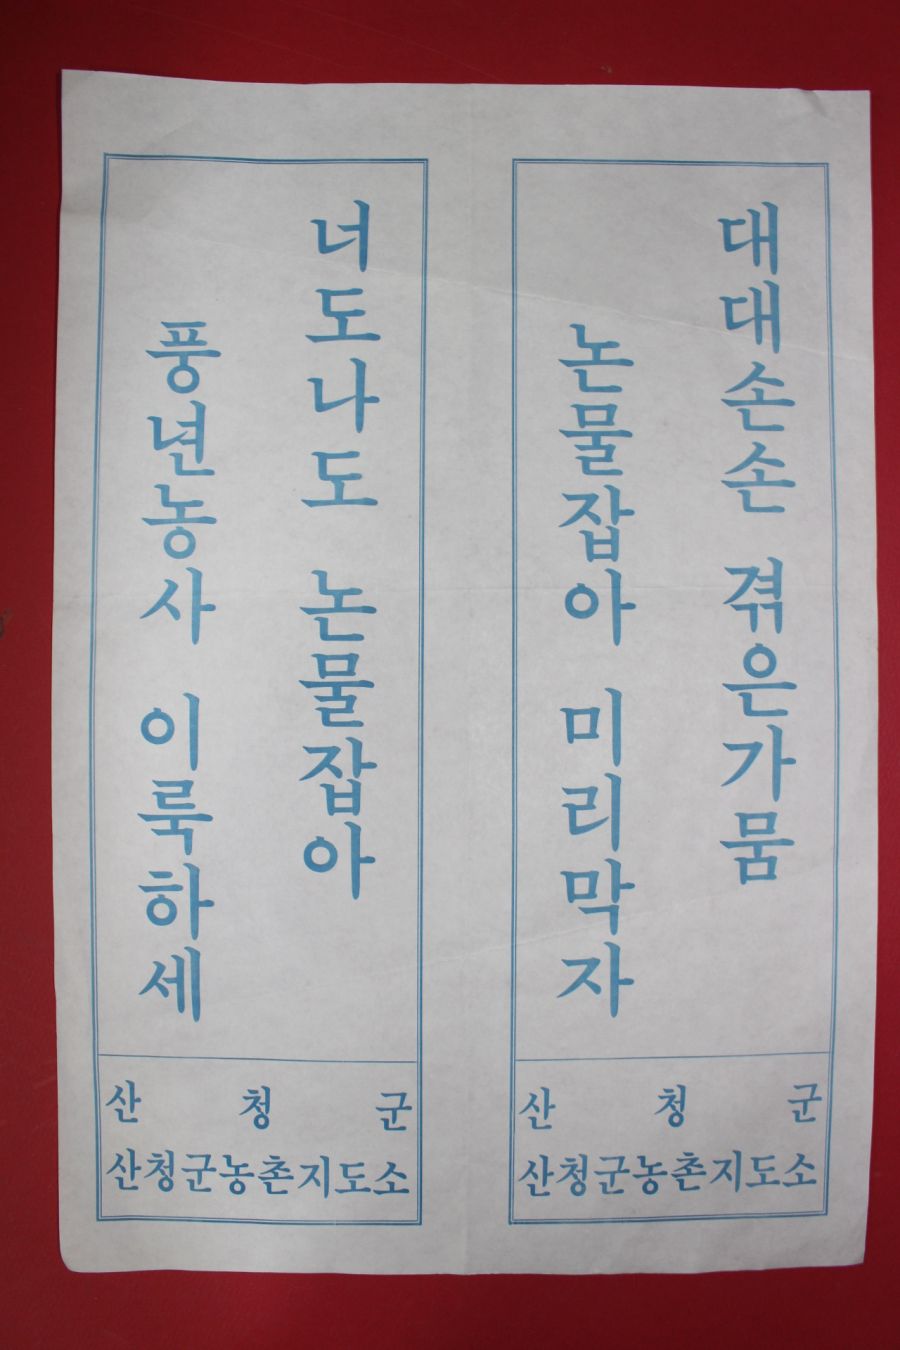 대대손손 겪은가뭄
논물잡아 미리막자
산청군
산청군농촌지도소
너도나도 논물잡아
풍년농사 이룩하세
산청군
산청군농촌지도소